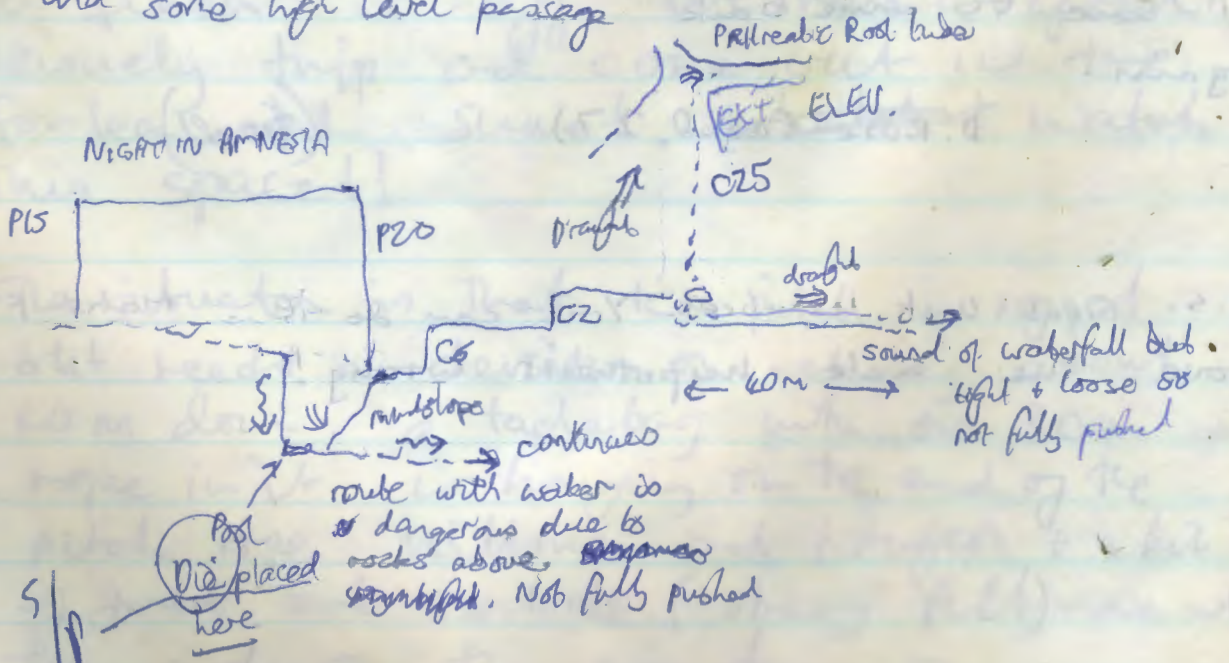 and some high level passage
PRHreatic Roof tube
ELEV.
NIGHT IN AMNESIA
C25
P15
P20
Draught
draught
C2
C6
sound of waterfall but
tight + loose so
not fully pushed
← 40m →
mudslope
continues
route with water is
dangerous due to
rocks above.
Not fully pushed
Pool
Die placed
here